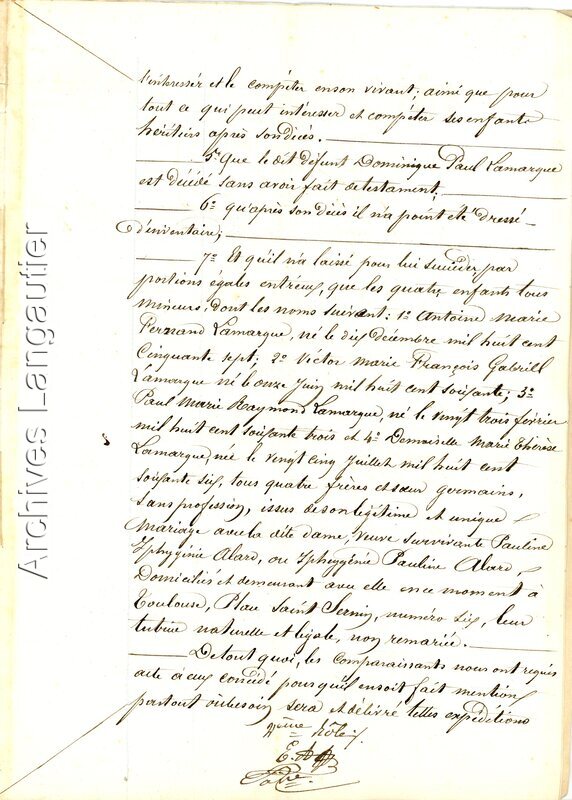 l'intéresser et le compéter en son vivant; ainsi que pour
tout ce qui peut intéresser et compéter ses enfants
héritiers après son décès.
5° Que le dit défunt Dominique Paul Lamarque
est décédé sans avoir fait de testament;
6° qu'après son décès il n'a point été dressé
d'inventaire;
7° Et qu'il n'a laissé pour lui succéder, par
portions égales entr'eux, que les quatre enfants tous
mineurs, dont les noms suivent: 1° Antoine Marie
Fernand Lamarque, né le dix Décembre mil huit cent
Cinquante sept; 2° Victor Marie François Gabriel
Lamarque né le onze Juin mil huit cent soixante; 3°
Paul Marie Raymond Lamarque, né le vingt trois février
mil huit cent soixante trois et 4° Demoiselle Marie Thérèse
Lamarque, née le vingt cinq Juillet mil huit cent
soixante six, tous quatre frères et sœur germains,
sans profession, issus de son légitime et unique
Mariage avec la dite dame, Veuve survivante Pauline
Iphygénie Alard, ou Iphygénie Pauline Alard,
Domiciliés et demeurant avec elle en ce moment à
Toulouse, Place Saint Sernin, numéro six, leur
tutrice naturelle et légale, non remariée.
De tout quoi, les comparaissants nous ont requis
acte à eux concédé pour qu'il en soit fait mention
partout où besoin sera et délivré telles expéditions
2ème rôle
E. A
Archives Langautier